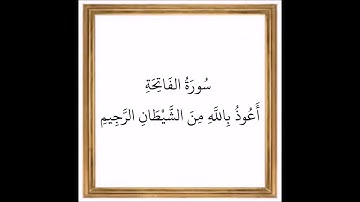 سُورَةُ الفَاتِحَةِ
أَعُوذُ بِاللَّهِ مِنَ الشَّيْطَانِ الرَّجِيمِ